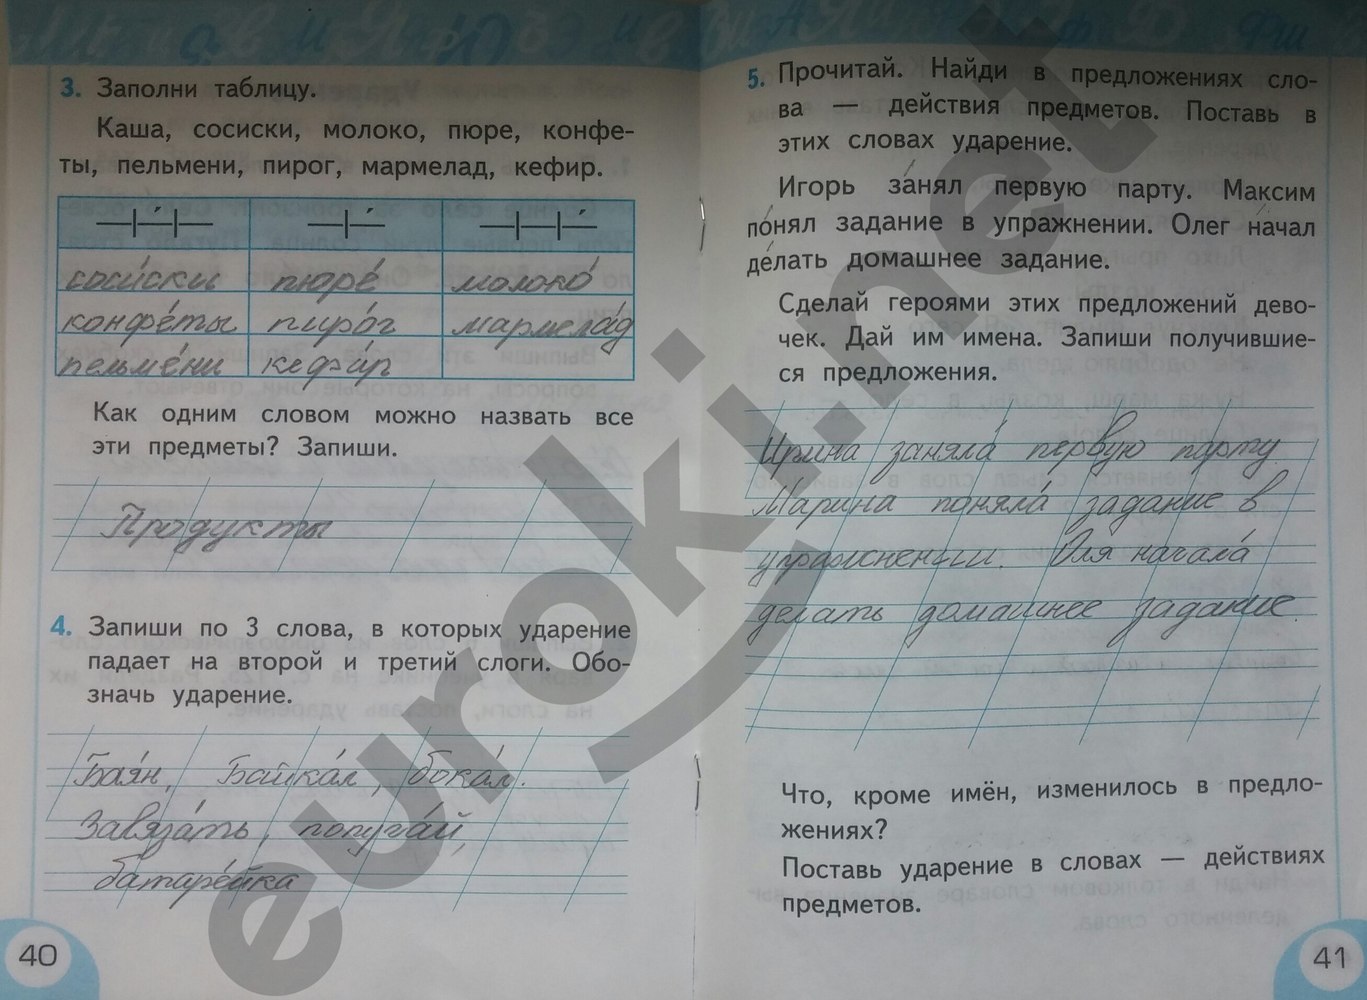 3. Заполни таблицу.
Каша, сосиски, молоко, пюре, конфе-
ты, пельмени, пирог, мармелад, кефир.
соси́ски пюре́ молоко́
конфе́ты пиро́г мармела́д
пельме́ни кефи́р
Как одним словом можно назвать все
эти предметы? Запиши.
Продукты
4. Запиши по 3 слова, в которых ударение
падает на второй и третий слоги. Обо-
значь ударение.
Бая́н, Байка́л, бока́л.
Завяза́ть, попуга́й,
батаре́йка
40
5. Прочитай. Найди в предложениях сло-
ва — действия предметов. Поставь в
этих словах ударение.
Игорь за́нял первую парту. Максим
по́нял задание в упражнении. Олег на́чал
де́лать домашнее задание.
Сделай героями этих предложений дево-
чек. Дай им имена. Запиши получившие-
ся предложения.
Ирина заняла́ первую парту
Марина поняла́ задание в
упражнении. Оля начала́
делать домашнее задание.
Что, кроме имён, изменилось в предло-
жениях?
Поставь ударение в словах — действиях
предметов.
41
euroki.net